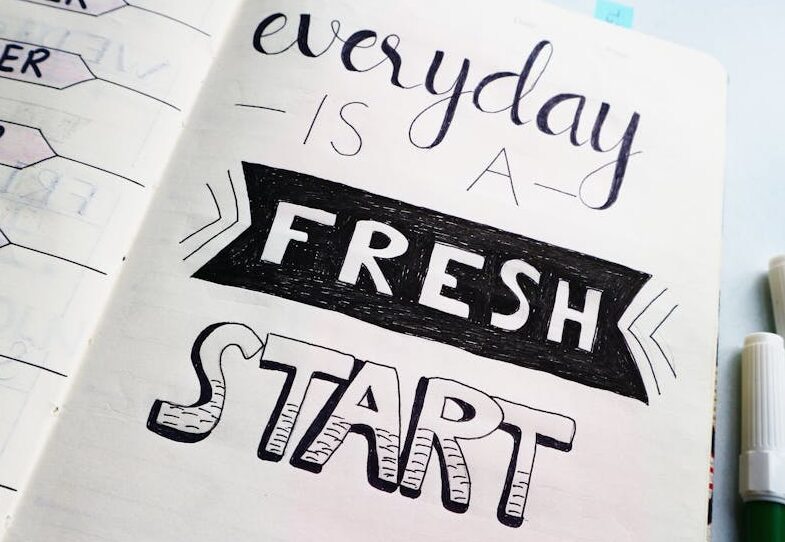 ER
ER
everyday
IS
A
FRESH
START